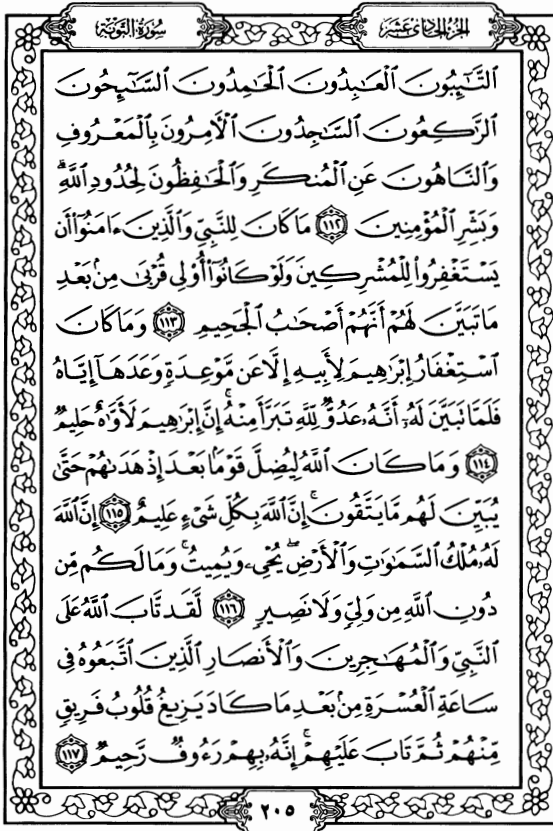 الجزء الحادي عشر
سورة التوبة
التَّٰٓئِبُونَ الْعَٰبِدُونَ الْحَٰمِدُونَ السَّٰٓئِحُونَ
الرَّٰكِعُونَ السَّٰجِدُونَ الْأٓمِرُونَ بِالْمَعْرُوفِ
وَالنَّاهُونَ عَنِ الْمُنكَرِ وَالْحَٰفِظُونَ لِحُدُودِ اللَّهِ ۗ
وَبَشِّرِ الْمُؤْمِنِينَ ١١٢ مَا كَانَ لِلنَّبِيِّ وَالَّذِينَ ءَامَنُوٓا۟ أَن
يَسْتَغْفِرُوا۟ لِلْمُشْرِكِينَ وَلَوْ كَانُوٓا۟ أُو۟لِى قُرْبَىٰ مِنۢ بَعْدِ
مَا تَبَيَّنَ لَهُمْ أَنَّهُمْ أَصْحَٰبُ الْجَحِيمِ ١١٣ وَمَا كَانَ
اسْتِغْفَارُ إِبْرَٰهِيمَ لِأَبِيهِ إِلَّا عَن مَّوْعِدَةٍ وَعَدَهَآ إِيَّاهُ
فَلَمَّا تَبَيَّنَ لَهُۥٓ أَنَّهُۥ عَدُوٌّ لِّلَّهِ تَبَرَّأَ مِنْهُ ۚ إِنَّ إِبْرَٰهِيمَ لَأَوَّٰهٌ حَلِيمٌ
١١٤ وَمَا كَانَ اللَّهُ لِيُضِلَّ قَوْمًۢا بَعْدَ إِذْ هَدَىٰهُمْ حَتَّىٰ
يُبَيِّنَ لَهُم مَّا يَتَّقُونَ ۚ إِنَّ اللَّهَ بِكُلِّ شَىْءٍ عَلِيمٌ ١١٥ إِنَّ اللَّهَ
لَهُۥ مُلْكُ السَّمَٰوَٰتِ وَالْأَرْضِ ۖ يُحْىِۦ وَيُمِيتُ ۚ وَمَا لَكُم مِّن
دُونِ اللَّهِ مِن وَلِىٍّ وَلَا نَصِيرٍ ١١٦ لَّقَد تَّابَ اللَّهُ عَلَى
النَّبِىِّ وَالْمُهَٰجِرِينَ وَالْأَنصَارِ الَّذِينَ اتَّبَعُوهُ فِى
سَاعَةِ الْعُسْرَةِ مِنۢ بَعْدِ مَا كَادَ يَزِيغُ قُلُوبُ فَرِيقٍ
مِّنْهُمْ ثُمَّ تَابَ عَلَيْهِمْ ۚ إِنَّهُۥ بِهِمْ رَءُوفٌ رَّحِيمٌ ١١٧
٢٠٥